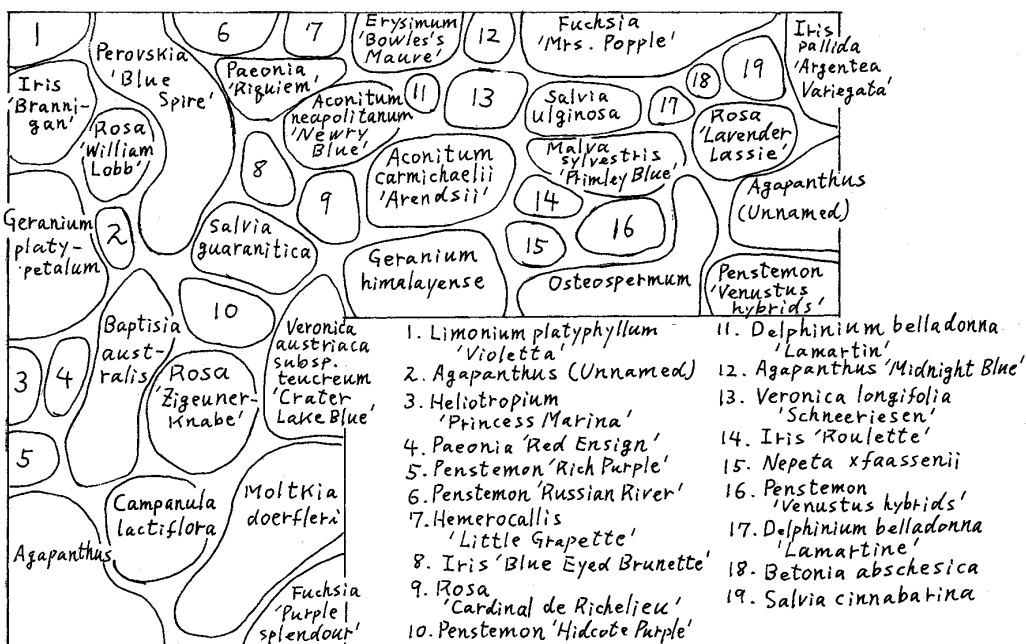 1
Perovskia
'Blue
Spire'
6
7
Erysimum
'Bowles's
Mauve'
12
Fuchsia
'Mrs. Popple'
Iris
pallida
'Argentea
Variegata'
Iris
'Branni-
gan'
Paeonia
'Riquiem'
Aconitum
neapolitanum
'Newry
Blue'
11
13
Salvia
ulginosa
17
18
19
Rosa
'William
Lobb'
8
9
Aconitum
carmichaelii
'Arendsii'
Malva
sylvestris
'Primley Blue'
Rosa
'Lavender
Lassie'
14
15
16
Agapanthus
(Unnamed)
Geranium
platy-
petalum
2
Salvia
guaranitica
Geranium
himalayense
Osteospermum
Penstemon
'Venustus
hybrids'
10
Baptisia
aust-
ralis
Veronica
austriaca
subsp.
teucreum
'Crater
Lake Blue'
3
4
Rosa
'Zigeuner-
Knabe'
5
Campanula
lactiflora
Moltkia
doerfleri
Agapanthus
Fuchsia
'Purple
splendour'
1. Limonium platyphyllum
'Violetta'
2. Agapanthus (Unnamed)
3. Heliotropium
'Princess Marina'
4. Paeonia 'Red Ensign'
5. Penstemon 'Rich Purple'
6. Penstemon 'Russian River'
7. Hemerocallis
'Little Grapette'
8. Iris 'Blue Eyed Brunette'
9. Rosa
'Cardinal de Richelieu'
10. Penstemon 'Hidcote Purple'
11. Delphinium belladonna
'Lamartin'
12. Agapanthus 'Midnight Blue'
13. Veronica longifolia
'Schneeriesen'
14. Iris 'Roulette'
15. Nepeta x faassenii
16. Penstemon
'Venustus hybrids'
17. Delphinium belladonna
'Lamartine'
18. Betonia abschesica
19. Salvia cinnabarina